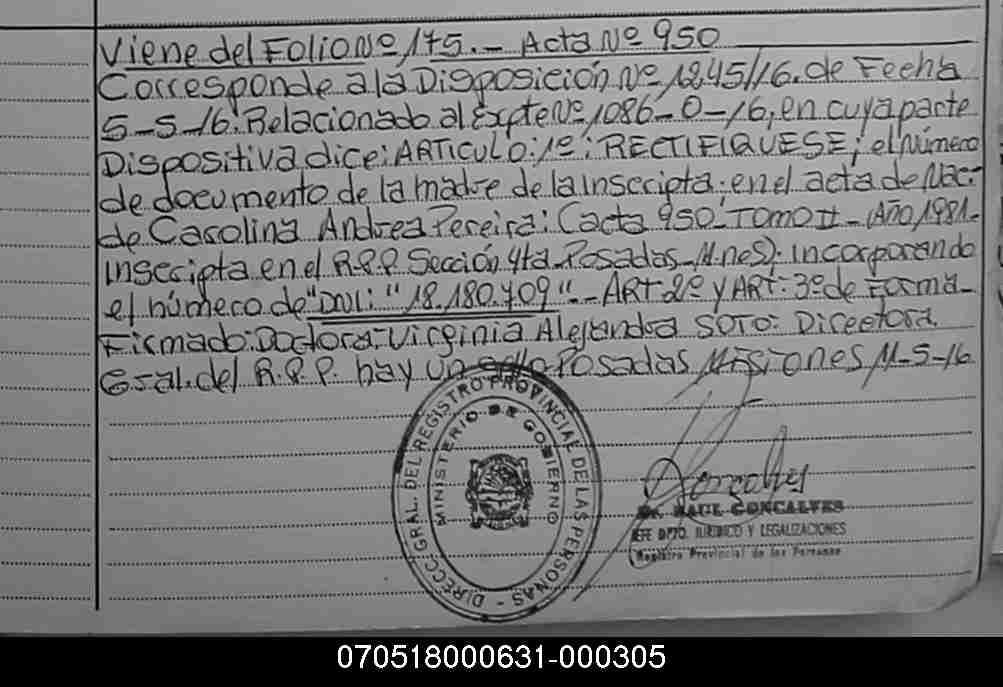 Viene del Folio Nº 175.- Acta Nº 950
Corresponde a la Disposición Nº 1245/16. de Fecha
5-5-16. Relacionado al Expte Nº 1086-O-16, en cuya parte
Dispositiva dice: ARTICULO: 1º: RECTIFIQUESE; el Número
de documento de la madre de la inscripta; en el acta de Nac.
de Carolina Andrea Pereira: (acta 950-TOMO II-(Año 1981-
inscripta en el R.P.P. Sección 4ta Posadas-M.nes). incorporando
el número de "DNI: "18.180.709".- ART 2º y ART: 3º de Forma-
Firmado: Doctora: Virginia Alejandra SOTO: Directora
Gral. del R.P.P. hay un sello Posadas Misiones 11-5-16
DIRECC. GRAL. DEL REGISTRO PROVINCIAL DE LAS PERSONAS -
MINISTERIO DE GOBIERNO
Goncalves
Dr. RAUL GONCALVES
JEFE DPTO. JURIDICO Y LEGALIZACIONES
Registro Provincial de las Personas
070518000631-000305